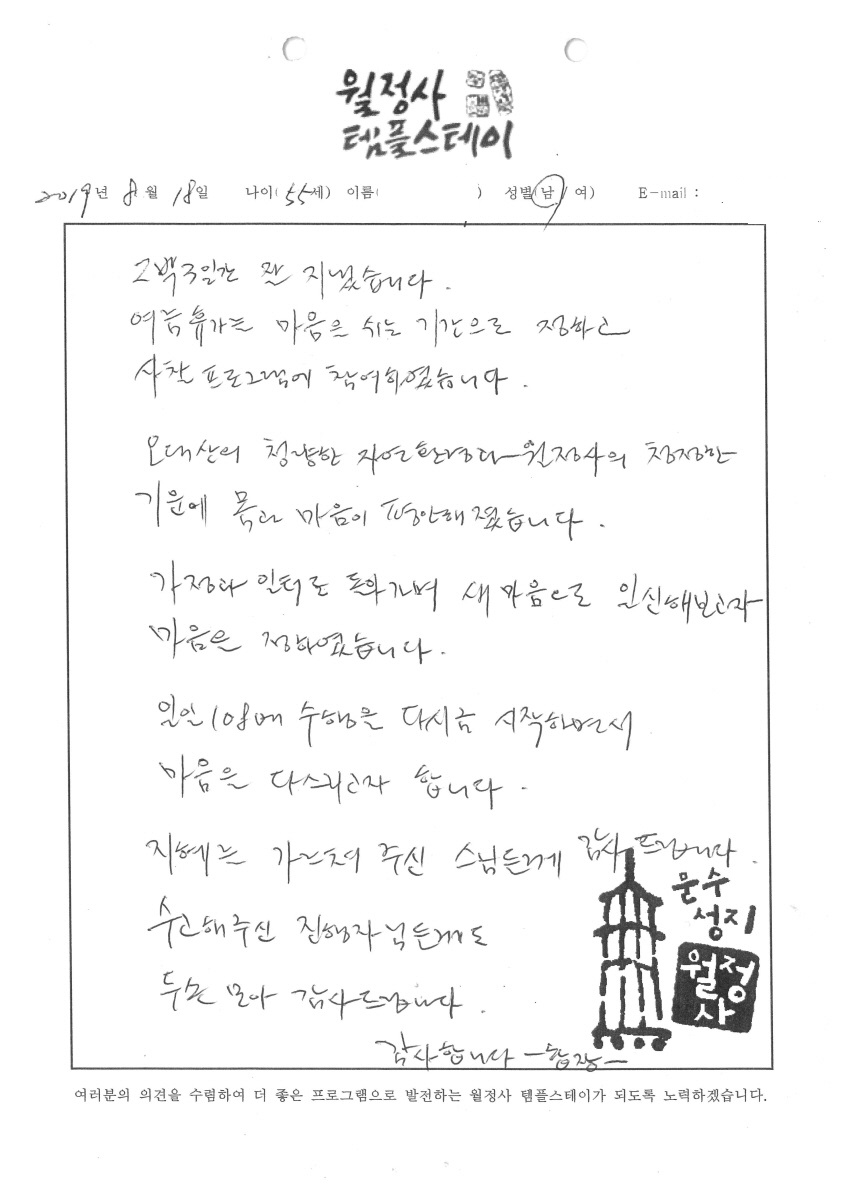 월정사
템플스테이
2019년 8월 18일 나이(55세) 이름( ) 성별(남/여) E-mail :
2백3일간 잘 지냈습니다.
여름휴가는 마음을 쉬는 기간으로 정하고
사찰 프로그램에 참여하였습니다.
오대산의 청량한 자연환경과 월정사의 청정한
기운에 몸과 마음이 평안해졌습니다.
가정과 일터로 돌아가며 새 마음으로 일신해보고자
마음을 정하였습니다.
일일 108배 수행을 다시금 시작하면서
마음을 다스리고자 합니다.
지혜를 가르쳐 주신 스님들께 감사드립니다.
수고해주신 진행자님들께도
두손 모아 감사드립니다.
감사합니다 -합장-
문수
성지
월정
사
여러분의 의견을 수렴하여 더 좋은 프로그램으로 발전하는 월정사 템플스테이가 되도록 노력하겠습니다.